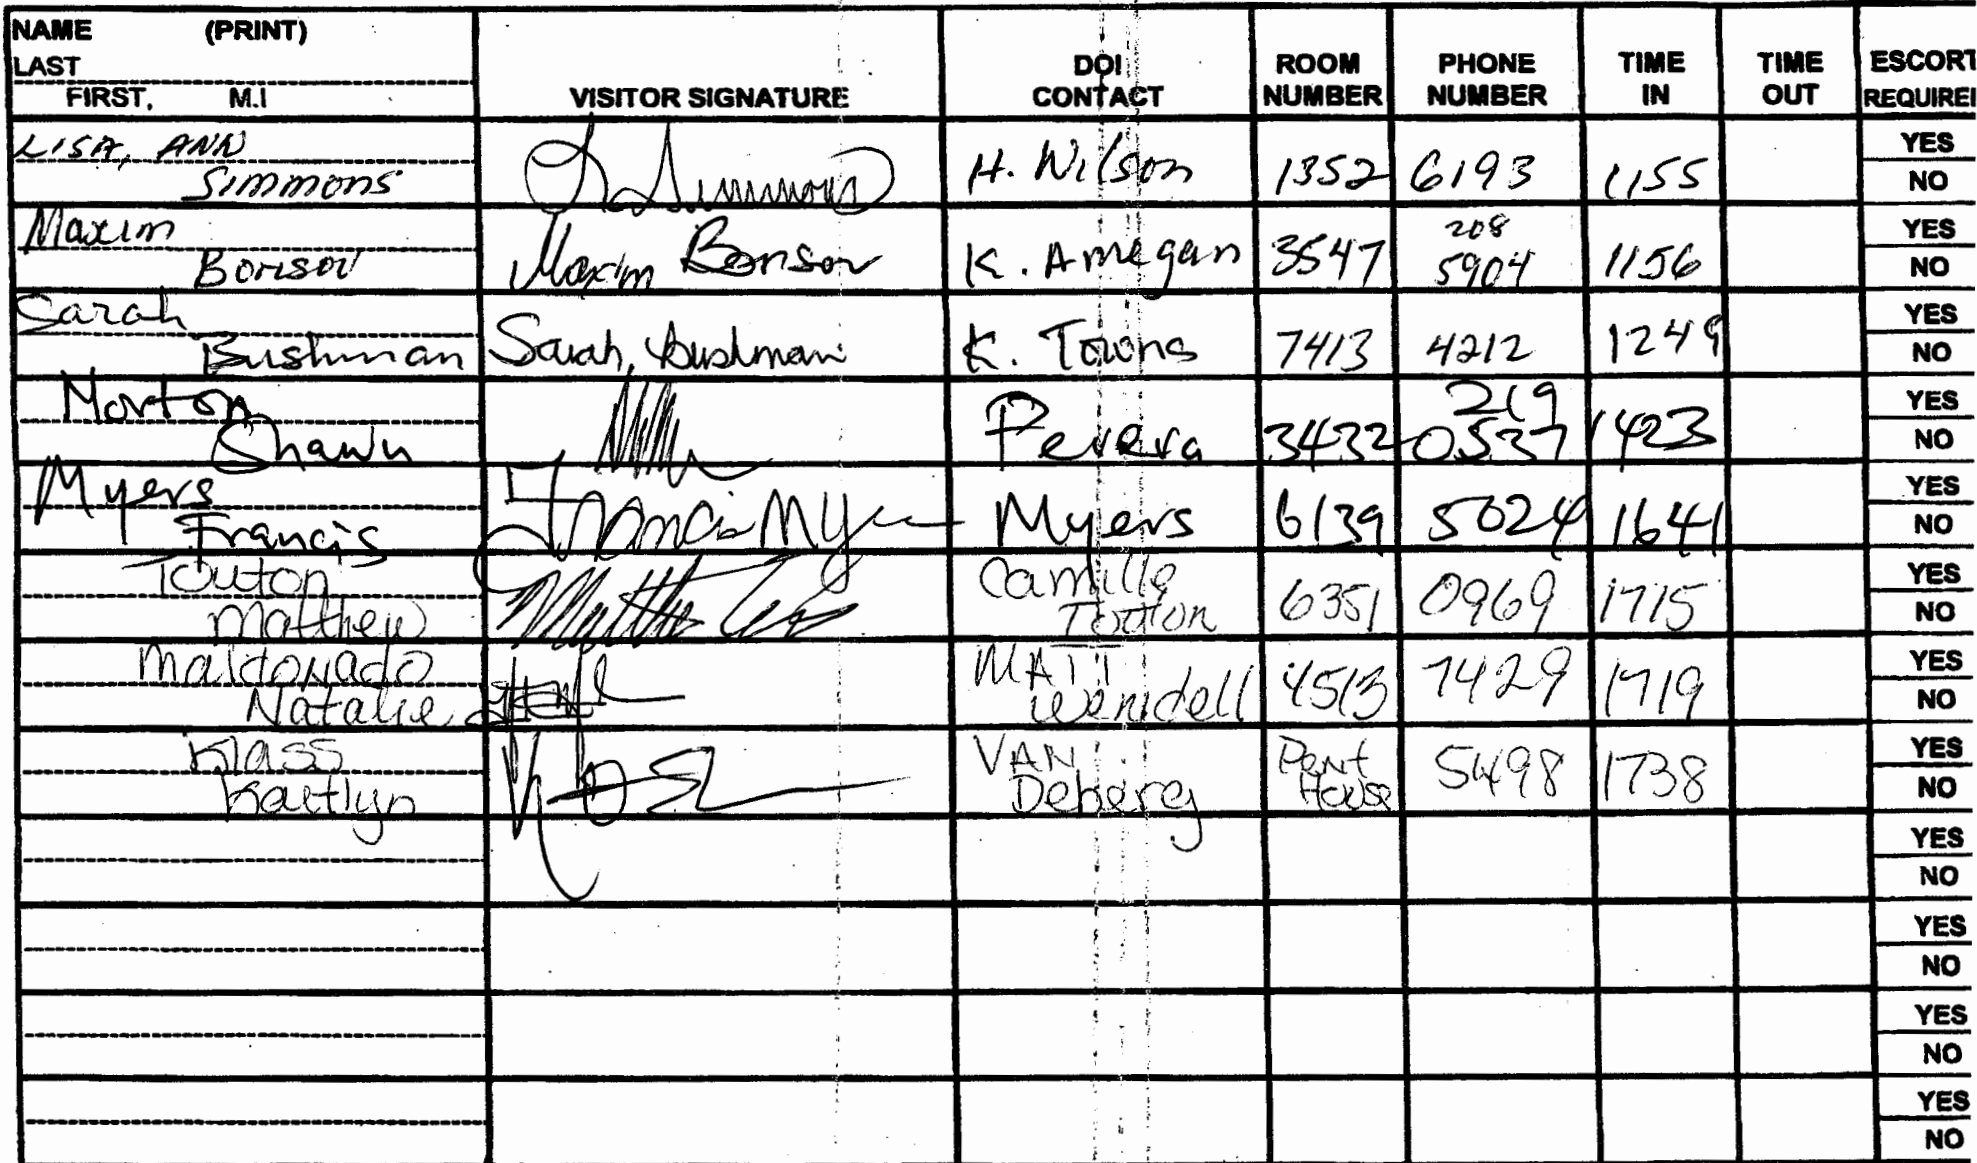 NAME (PRINT)
LAST
FIRST, M.I
VISITOR SIGNATURE
DOI CONTACT
ROOM NUMBER
PHONE NUMBER
TIME IN
TIME OUT
ESCORT REQUIRE
LISA, ANN
Simmons Simmons H. Wilson 1352 6193 1155 YES NO
Maxim
Borisov Maxim Borisov K. Amegan 3547 208 5904 1156 YES NO
Sarah
Bushman Sarah Bushman K. Towns 7413 4212 1249 YES NO
Morton
Shawn Perera 3432 219 0537 1423 YES NO
Myers
Francis Francis Mye Myers 6139 5024 1641 YES NO
Touton
Matthew Camille Touton 6351 0969 1715 YES NO
Maldonado
Natalie MATT Wendell 4513 7429 1719 YES NO
Klass
Kaitlyn VAN Deberg Pent House 5498 1738 YES NO
YES
NO
YES
NO
YES
NO
YES
NO